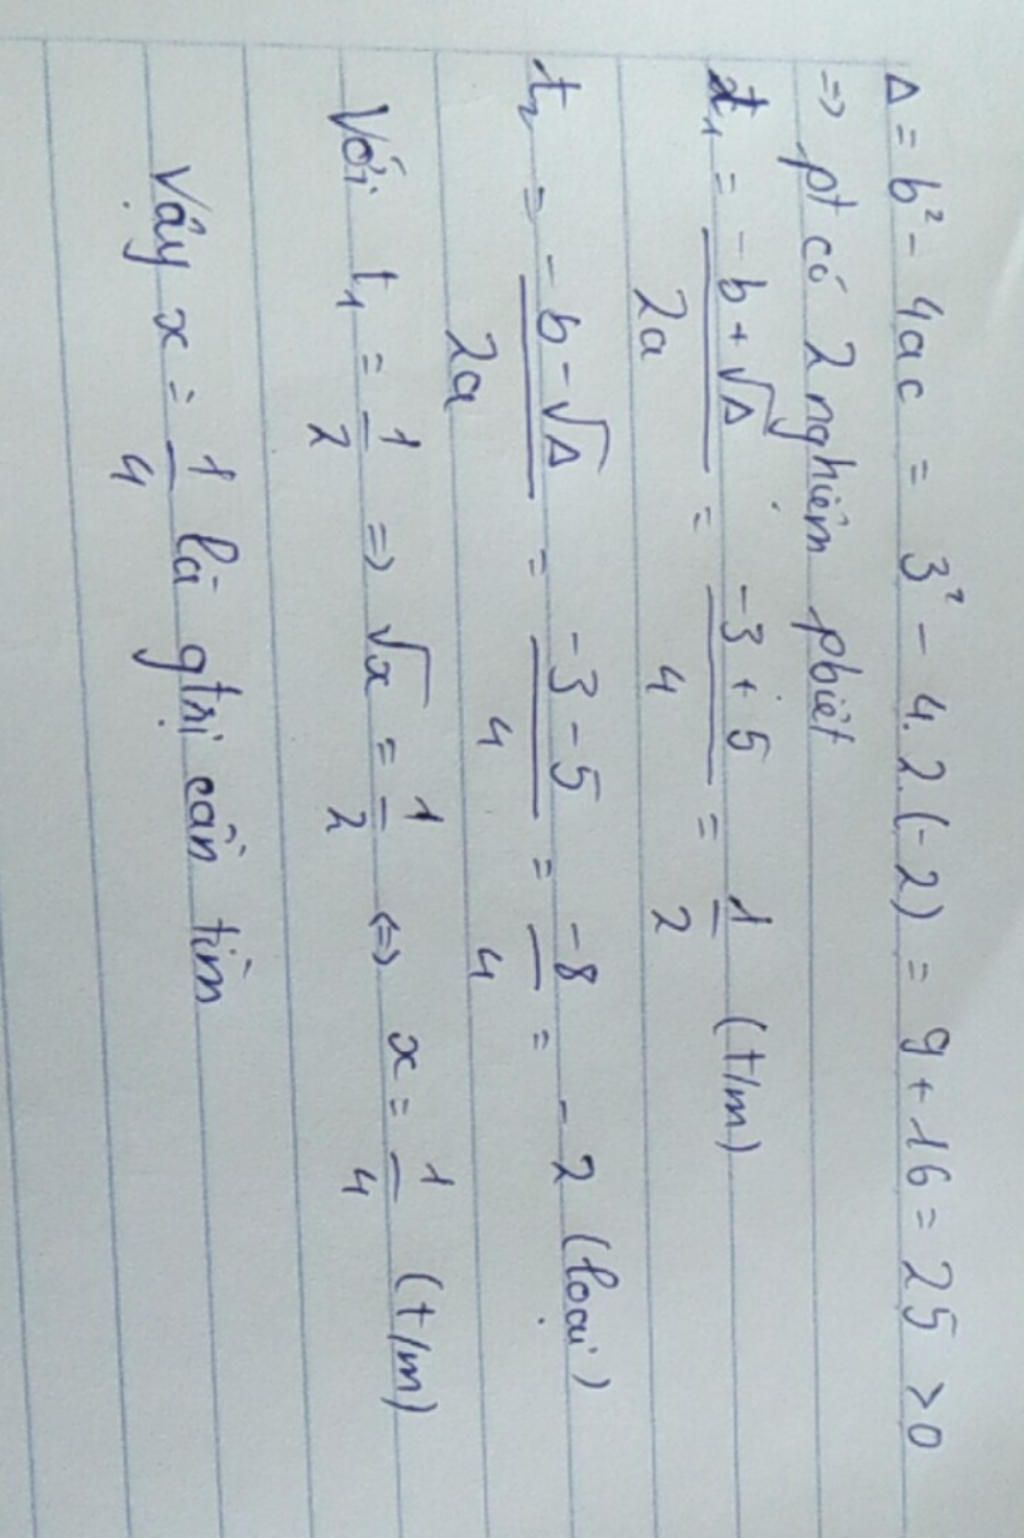 Δ = b² - 4ac = 3² - 4.2.(-2) = 9 + 16 = 25 > 0
=> pt có 2 nghiệm pbiệt
t₁ = (-b + √Δ)/2a = (-3 + 5)/4 = 1/2 (t/m)
t₂ = (-b - √Δ)/2a = (-3 - 5)/4 = -8/4 = -2 (loại)
Với t₁ = 1/2 => √x = 1/2 <=> x = 1/4 (t/m)
Vậy x = 1/4 là gtrị cần tìm